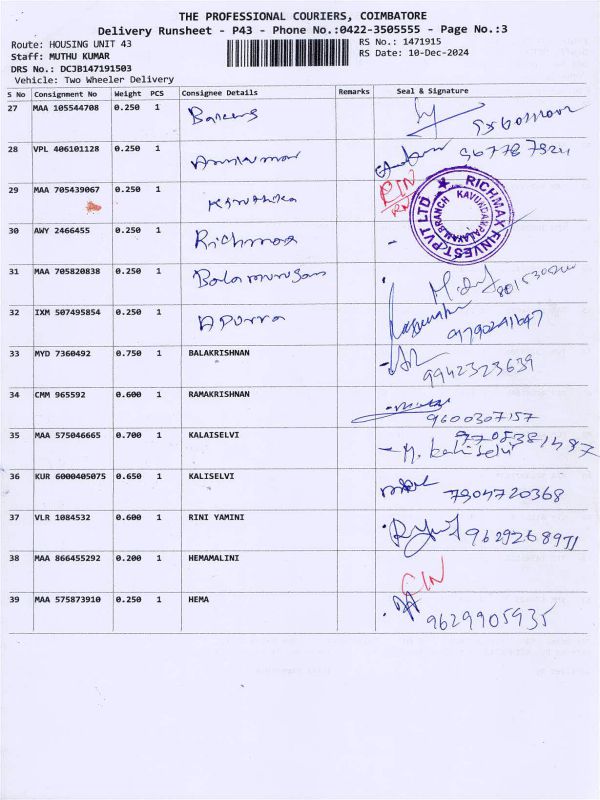 THE PROFESSIONAL COURIERS, COIMBATORE
Delivery Runsheet - P43 - Phone No.:0422-3505555 - Page No.:3
Route: HOUSING UNIT 43 RS No.: 1471915
Staff: MUTHU KUMAR RS Date: 10-Dec-2024
DRS No.: DCJB147191503
Vehicle: Two Wheeler Delivery
S No Consignment No Weight PCS Consignee Details Remarks Seal & Signature
27 MAA 105544708 0.250 1
28 VPL 406101128 0.250 1
29 MAA 705439067 0.250 1
RICHMAX FINVEST PVT LTD
KAVUNDAMPALAYAM BRANCH
30 AWY 2466455 0.250 1 Richmax
31 MAA 705820838 0.250 1 Balamurugan
32 IXM 507495854 0.250 1 Apurva
33 MYD 7360492 0.750 1 BALAKRISHNAN 9942323639
34 CMM 965592 0.600 1 RAMAKRISHNAN 9600307157
35 MAA 575046665 0.700 1 KALAISELVI
36 KUR 6000405075 0.650 1 KALISELVI 7904720368
37 VLR 1084532 0.600 1 RINI YAMINI
38 MAA 866455292 0.200 1 HEMAMALINI
39 MAA 575873910 0.250 1 HEMA 9629905935